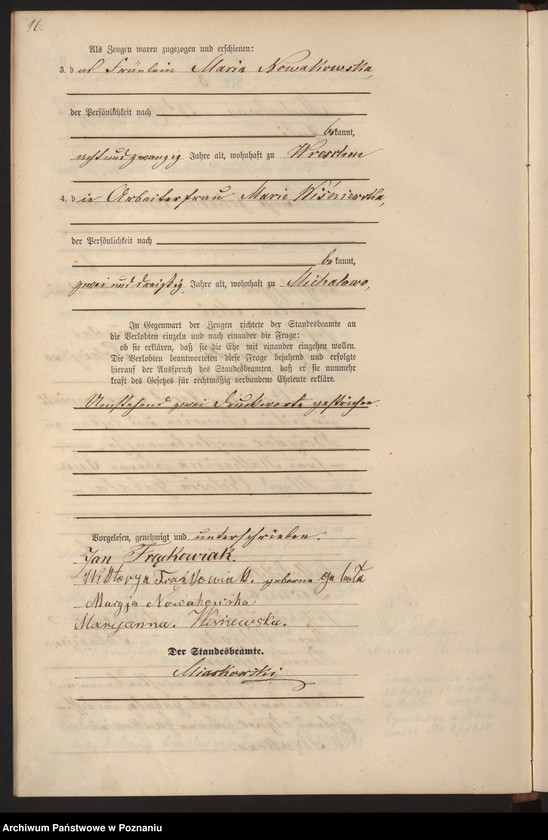 16.
Als Zeugen waren zugezogen und erschienen:
3. d as Fräulein Maria Nowakowska,
der Persönlichkeit nach
bekannt,
acht und zwanzig Jahre alt, wohnhaft zu Wreschen
4. d ie Arbeiterfrau Marie Wiśniewska,
der Persönlichkeit nach
bekannt,
zwei und dreißig Jahre alt, wohnhaft zu Michalowo,
In Gegenwart der Zeugen richtete der Standesbeamte an
die Verlobten einzeln und nach einander die Frage:
ob sie erklären, daß sie die Ehe mit einander eingehen wollen.
Die Verlobten beantworteten diese Frage bejahend und erfolgte
hierauf der Ausspruch des Standesbeamten, daß er sie nunmehr
kraft des Gesetzes für rechtmäßig verbundene Eheleute erkläre.
Umstehend zwei Druckworte gestrichen.
Vorgelesen, genehmigt und unterschrieben.
Jan Frąckowiak.
Wiktorya Frąckowiak geborne
Maryja Nowakowska
Maryanna. Wisniewska.
Der Standesbeamte.
Miaskowski
Archiwum Państwowe w Poznaniu